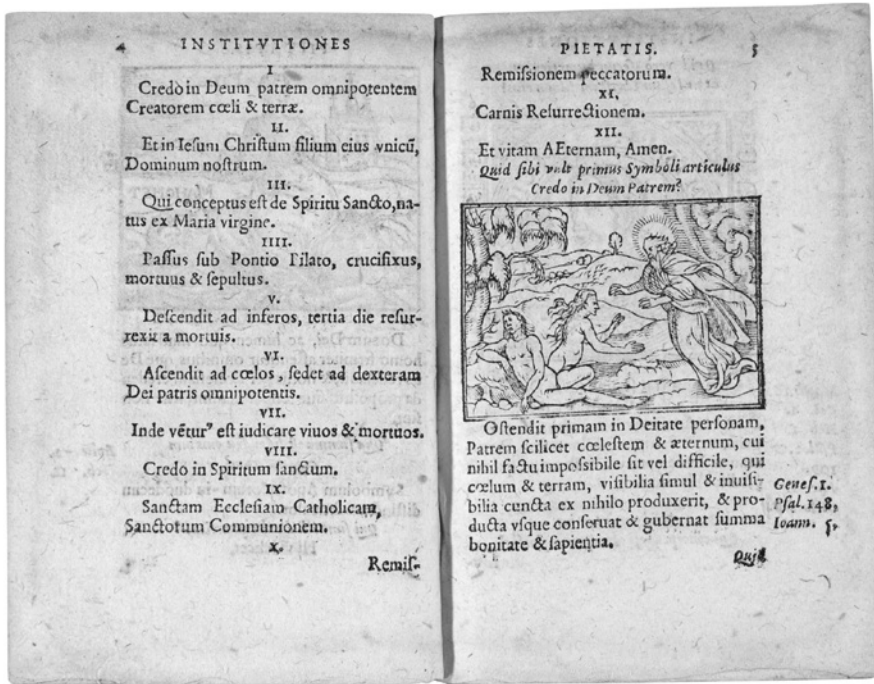 4 INSTITVTIONES
I
Credo in Deum patrem omnipotentem
Creatorem cœli & terræ.
II.
Et in Iesum Chriſtum filium eius vnicū,
Dominum noſtrum.
III.
Qui conceptus eſt de Spiritu Sancto, na-
tus ex Maria virgine.
IIII.
Paſſus ſub Pontio Pilato, crucifixus,
mortuus & ſepultus.
V.
Deſcendit ad inferos, tertia die reſur-
rexit a mortuis.
VI.
Aſcendit ad cœlos, ſedet ad dexteram
Dei patris omnipotentis.
VII.
Inde vētur⁹ eſt iudicare viuos & mortuos.
VIII.
Credo in Spiritum ſanctum.
IX.
Sanctam Eccleſiam Catholicam,
Sanctotum Communionem.
X.
Remiſ-
PIETATIS. 5
Remiſsionem peccatorum.
XI.
Carnis Reſurrectionem.
XII.
Et vitam AEternam, Amen.
Quid ſibi vult primus Symboli articulus
Credo in Deum Patrem?
Oſtendit primam in Deitate perſonam,
Patrem ſcilicet cœleſtem & æternum, cui
nihil factu impoſsibile ſit vel difficile, qui
cœlum & terram, viſibilia ſimul & inuiſi-
bilia cuncta ex nihilo produxerit, & pro-
ducta vſque conſeruat & gubernat ſumma
bonitate & ſapientia.
Geneſ. 1.
Pſal. 148,
Ioann. 5,
Quid